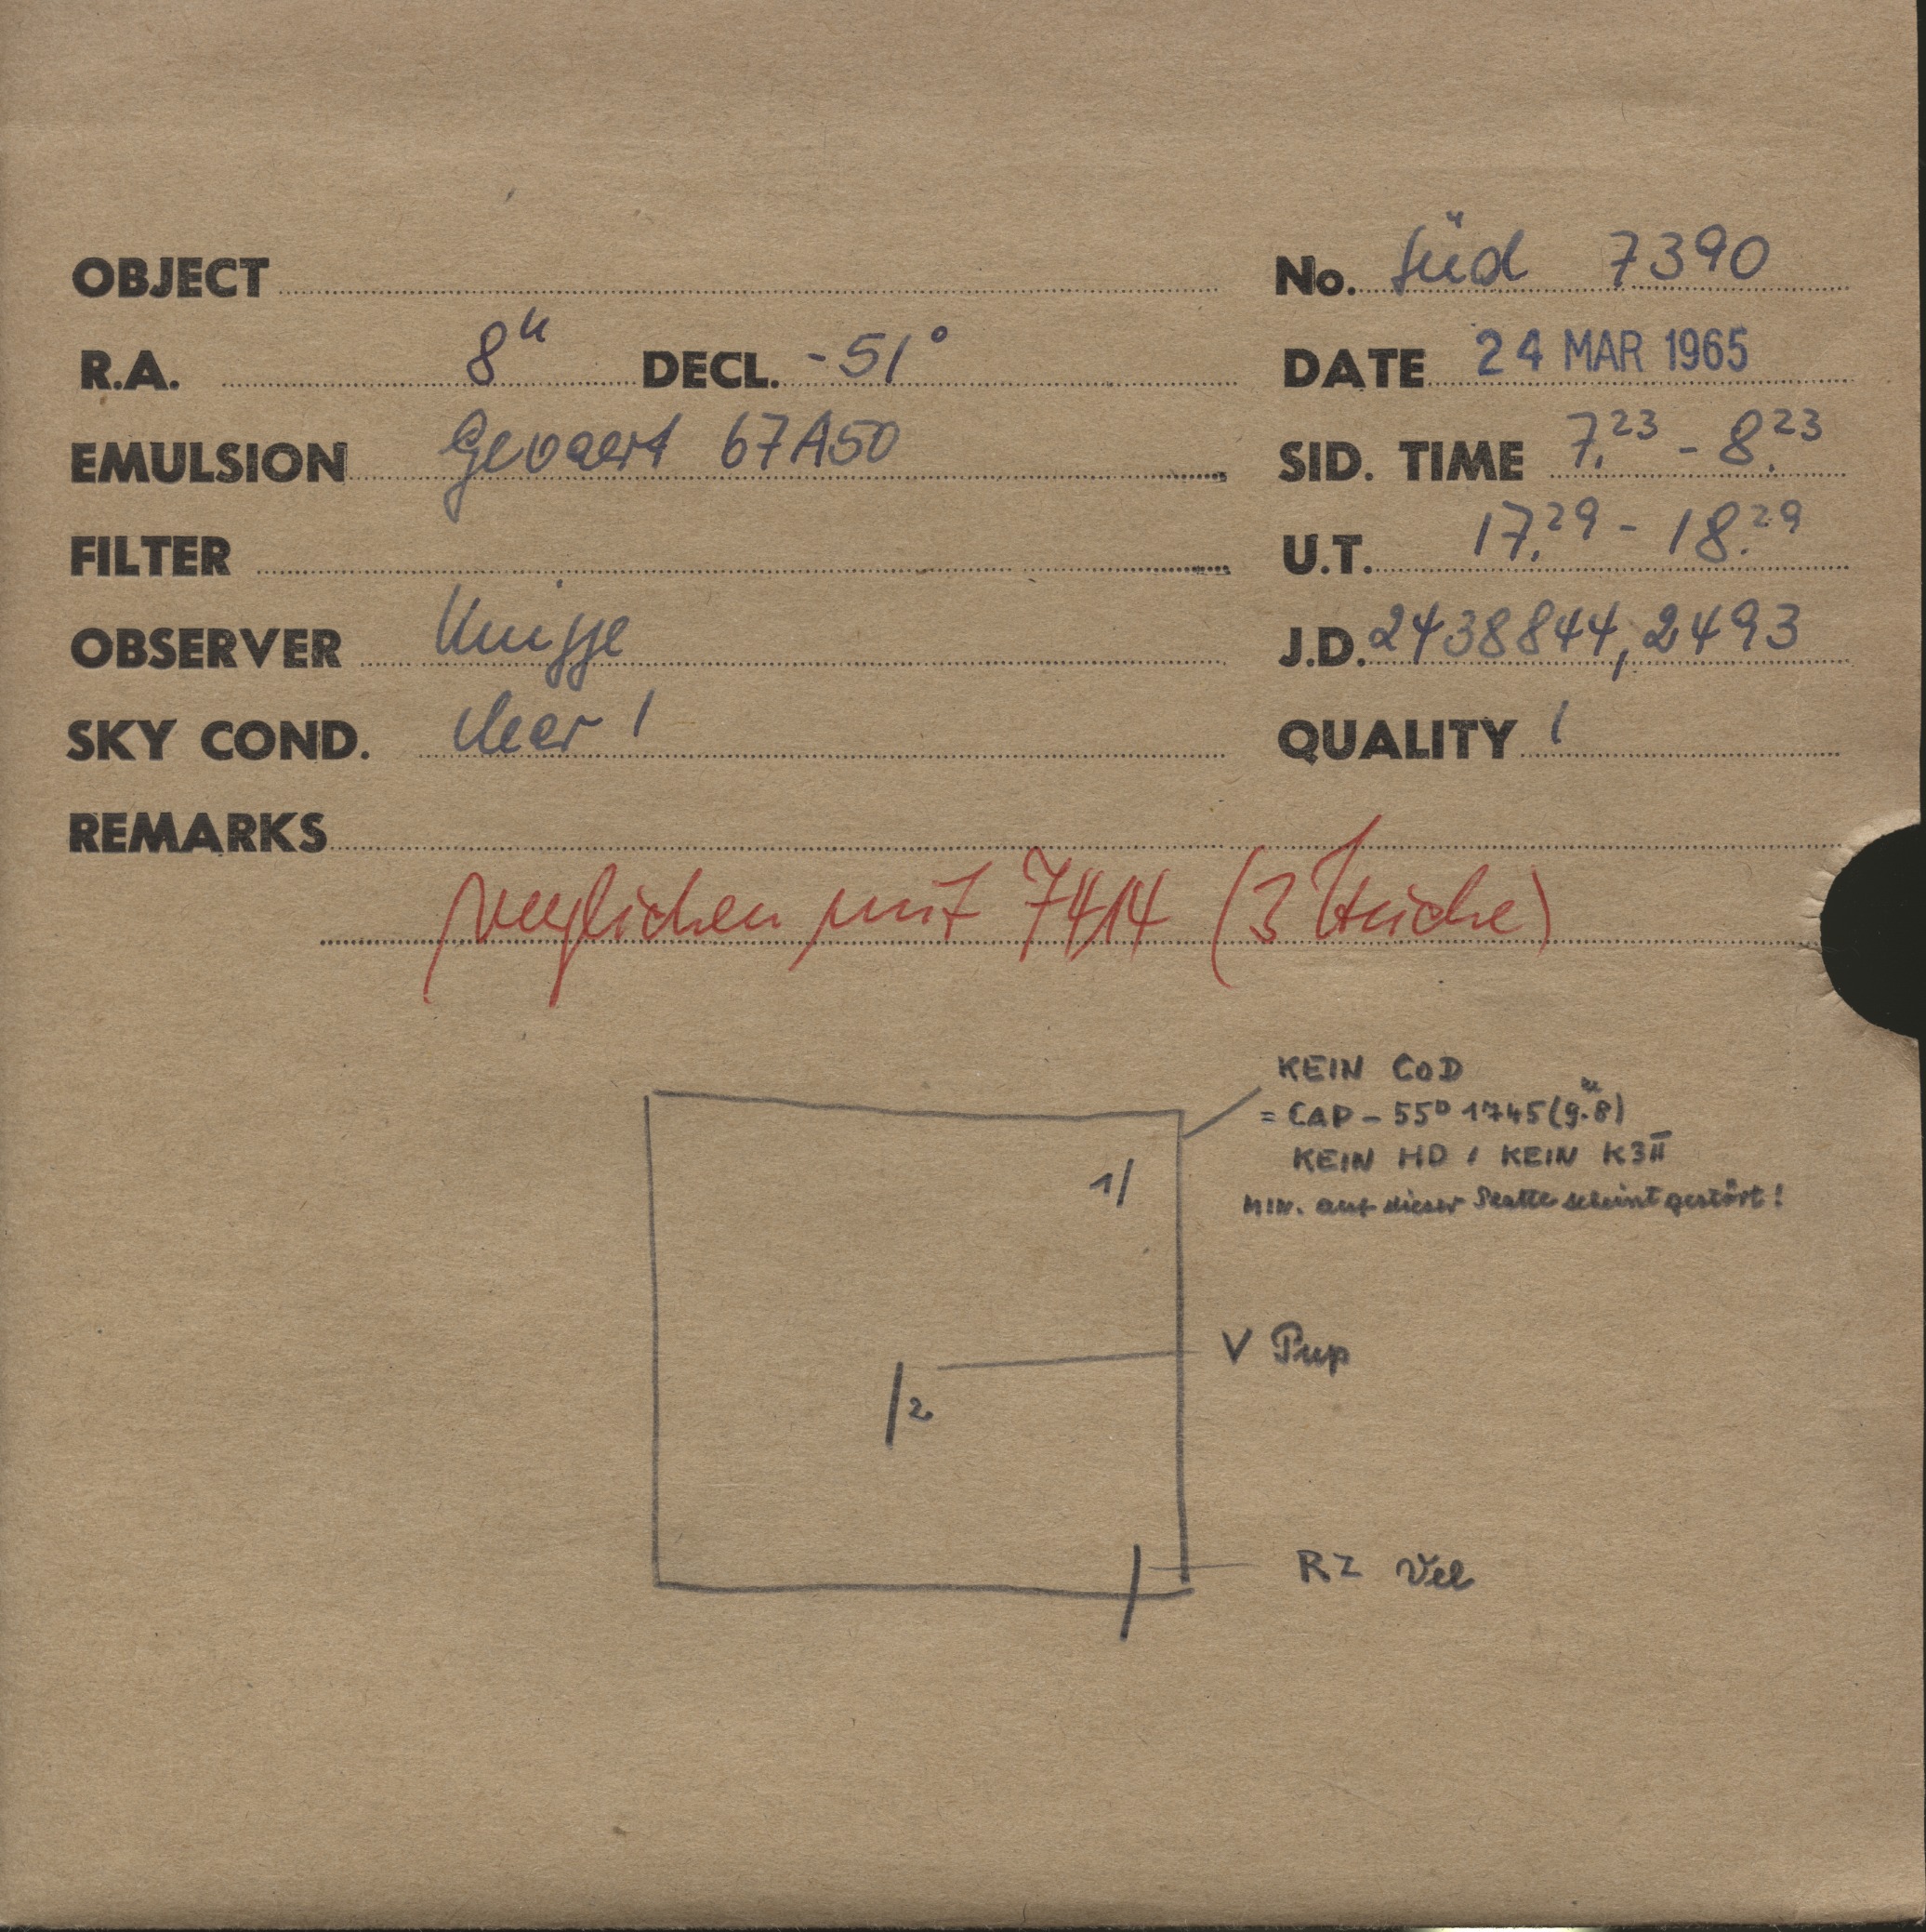 OBJECT No. Süd 7390
R.A. 8h DECL. -51°
DATE 24 MAR 1965
EMULSION Gevaert 67A50
SID. TIME 7.23 - 8.23
FILTER
U.T. 17.29 - 18.29
OBSERVER Knigge
J.D. 2438844,2493
SKY COND. clear 1
QUALITY 1
REMARKS
verglichen mit 7414 (3 Striche)
KEIN COD
= CAP - 55° 1745 (9.m8)
KEIN HD / KEIN K3II
MIN. auf dieser Platte scheint gestört!
1/
V Pup
/2
RZ Vel